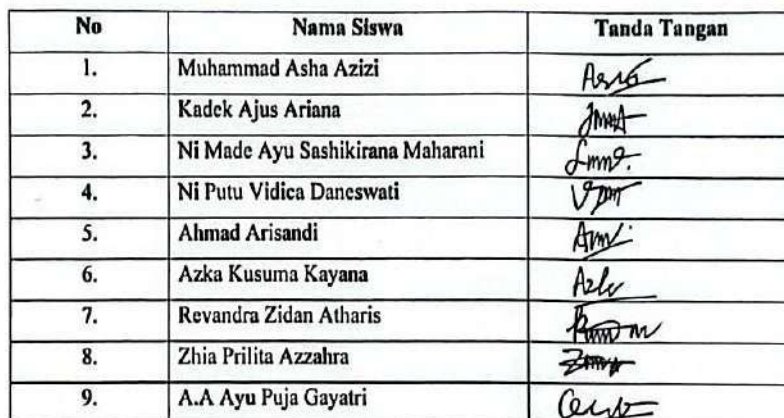 No Nama Siswa Tanda Tangan
1. Muhammad Asha Azizi
2. Kadek Ajus Ariana
3. Ni Made Ayu Sashikirana Maharani
4. Ni Putu Vidica Daneswati
5. Ahmad Arisandi
6. Azka Kusuma Kayana
7. Revandra Zidan Atharis
8. Zhia Prilita Azzahra
9. A.A Ayu Puja Gayatri